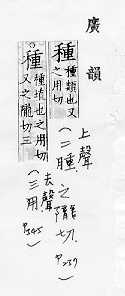 廣韻
種種類也又之用切
上聲
(二腫 之隴切. P239)
種種植也之用切又之隴切三
去聲
(三用. P345)